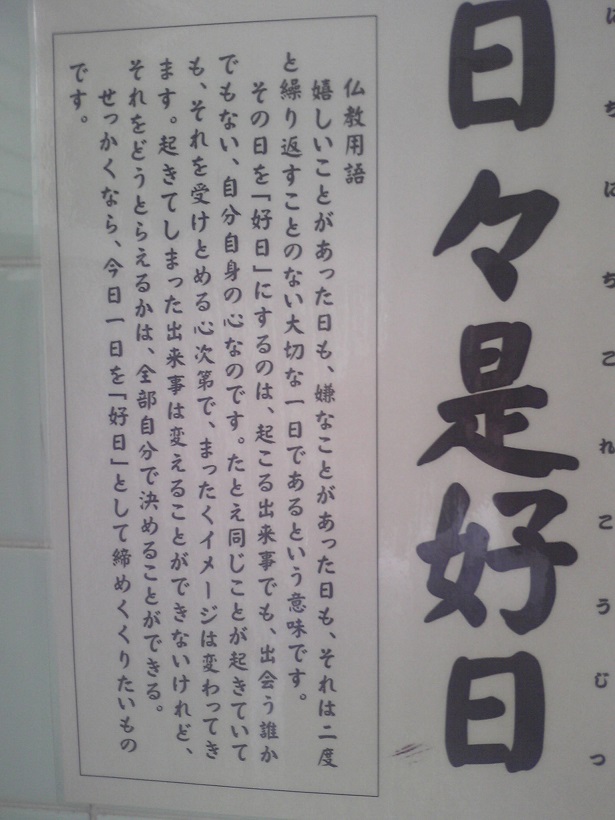 にちにちこれこうじつ
日々是好日
仏教用語
嬉しいことがあった日も、嫌なことがあった日も、それは二度
と繰り返すことのない大切な一日であるという意味です。
その日を「好日」にするのは、起こる出来事でも、出会う誰か
でもない、自分自身の心なのです。たとえ同じことが起きていて
も、それを受けとめる心次第で、まったくイメージは変わってき
ます。起きてしまった出来事は変えることができないけれど、
それをどうとらえるかは、全部自分で決めることができる。
せっかくなら、今日一日を「好日」として締めくくりたいもの
です。